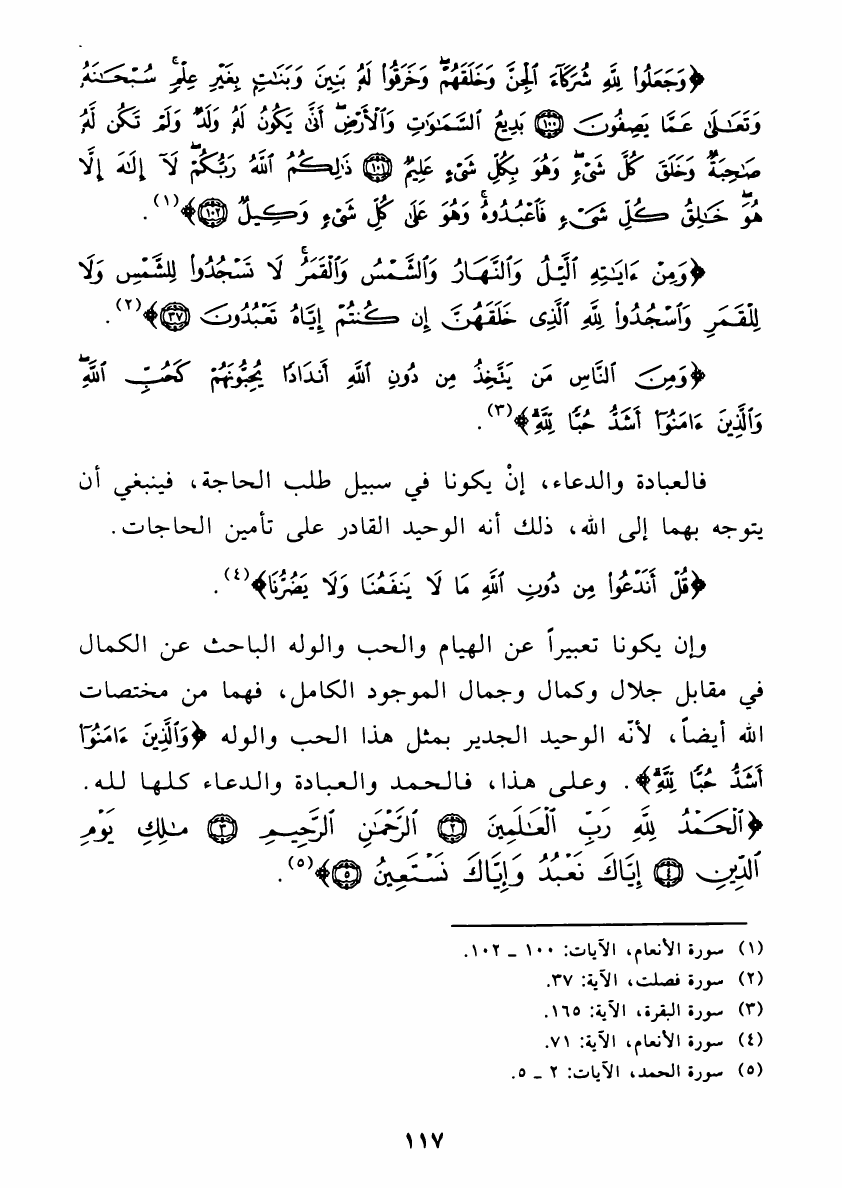 ﴿وَجَعَلُوا۟ لِلَّهِ شُرَكَآءَ ٱلْجِنَّ وَخَلَقَهُمْۖ وَخَرَقُوا۟ لَهُۥ بَنِينَ وَبَنَٰتٍۭ بِغَيْرِ عِلْمٍۚ سُبْحَٰنَهُۥ
وَتَعَٰلَىٰ عَمَّا يَصِفُونَ ١٠٠ بَدِيعُ ٱلسَّمَٰوَٰتِ وَٱلْأَرْضِۖ أَنَّىٰ يَكُونُ لَهُۥ وَلَدٌ وَلَمْ تَكُن لَّهُۥ
صَٰحِبَةٌۖ وَخَلَقَ كُلَّ شَىْءٍۖ وَهُوَ بِكُلِّ شَىْءٍ عَلِيمٌ ١٠١ ذَٰلِكُمُ ٱللَّهُ رَبُّكُمْۖ لَآ إِلَٰهَ إِلَّا
هُوَۖ خَٰلِقُ كُلِّ شَىْءٍ فَٱعْبُدُوهُۚ وَهُوَ عَلَىٰ كُلِّ شَىْءٍ وَكِيلٌ ١٠٢﴾(١).
﴿وَمِنْ ءَايَٰتِهِ ٱلَّيْلُ وَٱلنَّهَارُ وَٱلشَّمْسُ وَٱلْقَمَرُۚ لَا تَسْجُدُوا۟ لِلشَّمْسِ وَلَا
لِلْقَمَرِ وَٱسْجُدُوا۟ لِلَّهِ ٱلَّذِى خَلَقَهُنَّ إِن كُنتُمْ إِيَّاهُ تَعْبُدُونَ ٣٧﴾(٢).
﴿وَمِنَ ٱلنَّاسِ مَن يَتَّخِذُ مِن دُونِ ٱللَّهِ أَندَادًا يُحِبُّونَهُمْ كَحُبِّ ٱللَّهِۖ
وَٱلَّذِينَ ءَامَنُوٓا۟ أَشَدُّ حُبًّا لِّلَّهِۗ﴾(٣).
فالعبادة والدعاء، إنْ يكونا في سبيل طلب الحاجة، فينبغي أن
يتوجه بهما إلى الله، ذلك أنه الوحيد القادر على تأمين الحاجات.
﴿قُلْ أَنَدْعُوا۟ مِن دُونِ ٱللَّهِ مَا لَا يَنفَعُنَا وَلَا يَضُرُّنَا﴾(٤).
وإن يكونا تعبيراً عن الهيام والحب والوله الباحث عن الكمال
في مقابل جلال وكمال وجمال الموجود الكامل، فهما من مختصات
الله أيضاً، لأنّه الوحيد الجدير بمثل هذا الحب والوله ﴿وَٱلَّذِينَ ءَامَنُوٓا۟
أَشَدُّ حُبًّا لِّلَّهِۗ﴾. وعلى هذا، فالحمد والعبادة والدعاء كلها لله.
﴿ٱلْحَمْدُ لِلَّهِ رَبِّ ٱلْعَٰلَمِينَ ٢ ٱلرَّحْمَٰنِ ٱلرَّحِيمِ ٣ مَٰلِكِ يَوْمِ
ٱلدِّينِ ٤ إِيَّاكَ نَعْبُدُ وَإِيَّاكَ نَسْتَعِينُ ٥﴾(٥).
(١) سورة الأنعام، الآيات: ١٠٠ ـ ١٠٢.
(٢) سورة فصلت، الآية: ٣٧.
(٣) سورة البقرة، الآية: ١٦٥.
(٤) سورة الأنعام، الآية: ٧١.
(٥) سورة الحمد، الآيات: ٢ ـ ٥.
١١٧